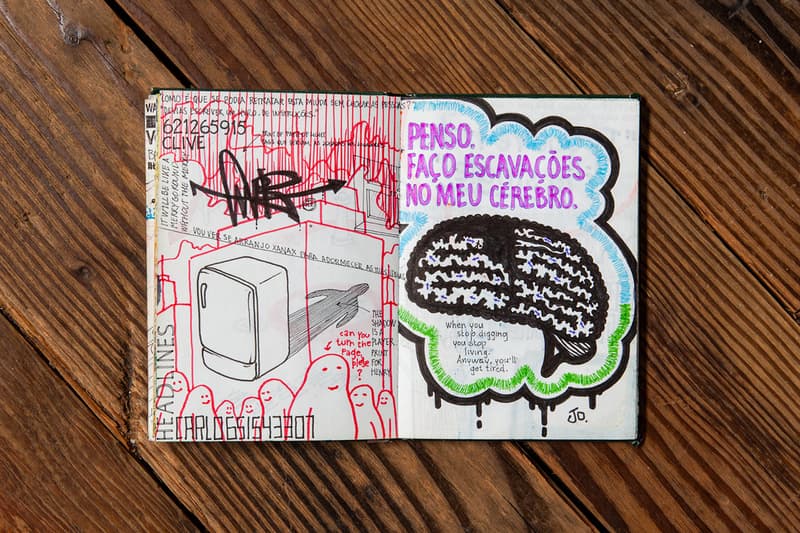 COMO É QUE SE PODIA RETRATAR ESTA PALIDA SEM CHOCAR AS PESSOAS?
ESCREVER UM LIVRO DE INSTRUÇÕES."
621265915
CLIVE
IT WILL BE LIKE A
MERRY GO ROUND
WITHOUT THE MERRY
VOU VER SE ARRANJO XANAX PARA ADORMECER AS
THE
SHADOW
IS A
PLAYER
PRINT
FOR
HENRY
can you
turn the
Page,
please
?
HEADLINES
CARLO
PENSO.
FAÇO ESCAVAÇÕES
NO MEU CÉREBRO.
when you
stop digging
you stop
living.
Anyway, you'll
get tired.
JO.